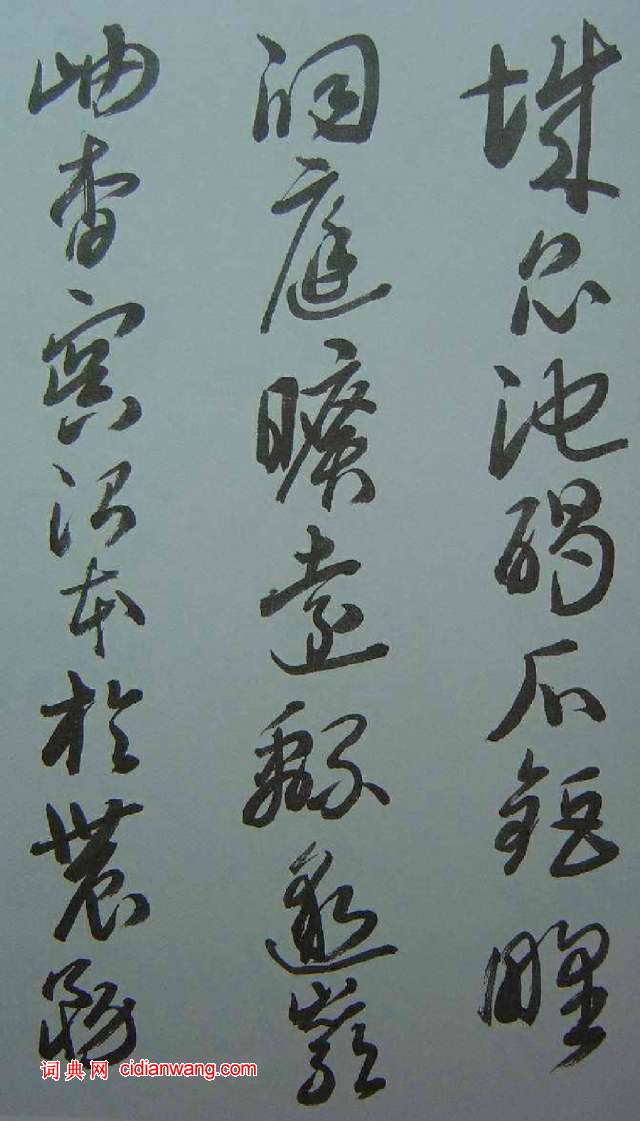 城昆池碣石鉅野
洞庭曠遠緜邈巖
岫杳冥治本於農務
词典网 cidianwang.com